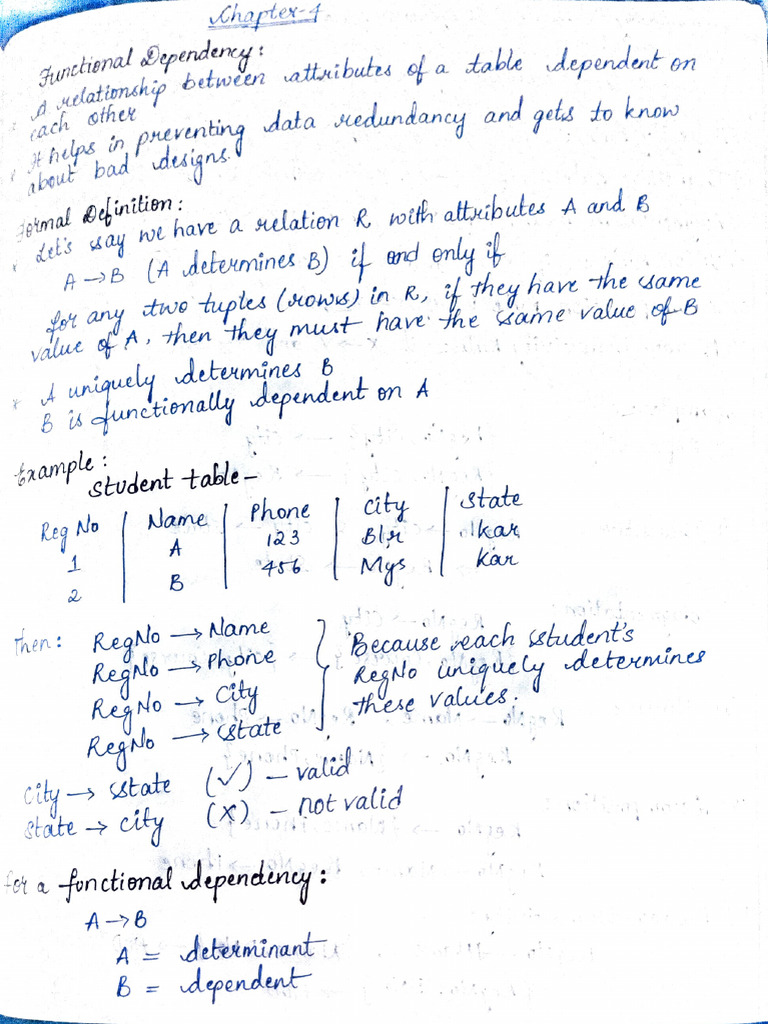 Chapter-4
Functional Dependency:
* A relationship between attributes of a table dependent on
each other
* It helps in preventing data redundancy and gets to know
about bad designs.
Formal Definition:
* Let's say we have a relation R with attributes A and B
A → B (A determines B) if and only if
for any two tuples (rows) in R, if they have the same
value of A, then they must have the same value of B
* A uniquely determines B
B is functionally dependent on A
Example:
Student table –
Reg No | Name | Phone | City | State
1 | A | 123 | Blr | Kar
2 | B | 456 | Mys | Kar
Then: RegNo → Name
RegNo → Phone
RegNo → City
RegNo → State
} Because each student's
RegNo uniquely determines
these values.
City → State (✓) – valid
State → City (X) – not valid
for a functional dependency:
A → B
A = determinant
B = dependent